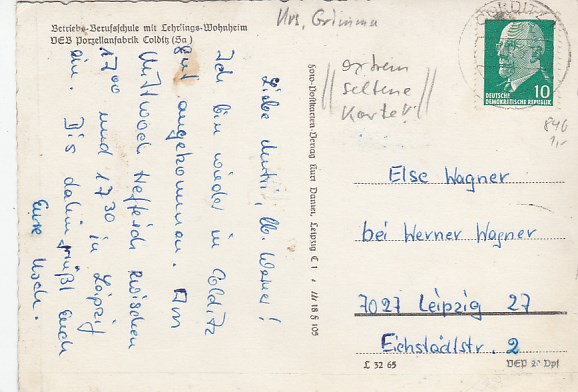 Betriebs-Berufsschule mit Lehrlings-Wohnheim
VEB Porzellanfabrik Colditz (Sa)
Krs. Grimma
extrem
seltene
Karte!
COLDITZ
DEUTSCHE
DEMOKRATISCHE REPUBLIK 10
846
1,-
Liebe Mutti, lb. Werner!
Ich bin wieder in Colditz
gut angekommen. Am
Mittwoch treffe ich zwischen
17.00 und 17.30 in Leipzig
ein. Bis dahin grüßt Euch
Eure
Foto-Postkarten-Verlag Kurt Leipzig C 1 III 18 5 105
Else Wagner
bei Werner Wagner
7027 Leipzig 27
Eichstädtstr. 2
L 32 65
VEP 20 Dpf